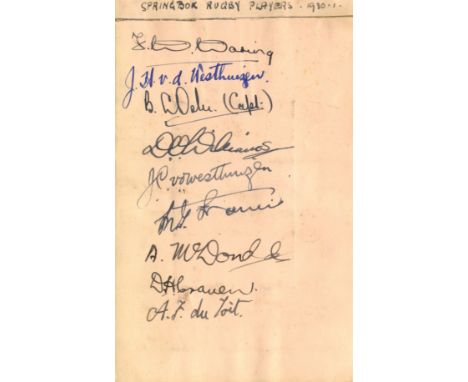 SPRINGBOK RUGBY PLAYERS . 1930-1.
F. W. Waring
J. H. v. d. Westhuizen.
B. L. Osler. (Capt.)
D. O. Williams
J. C. v. d. Westhuizen
M. G. Francis
A. McDonald
D H Craven.
A. F. du Toit.